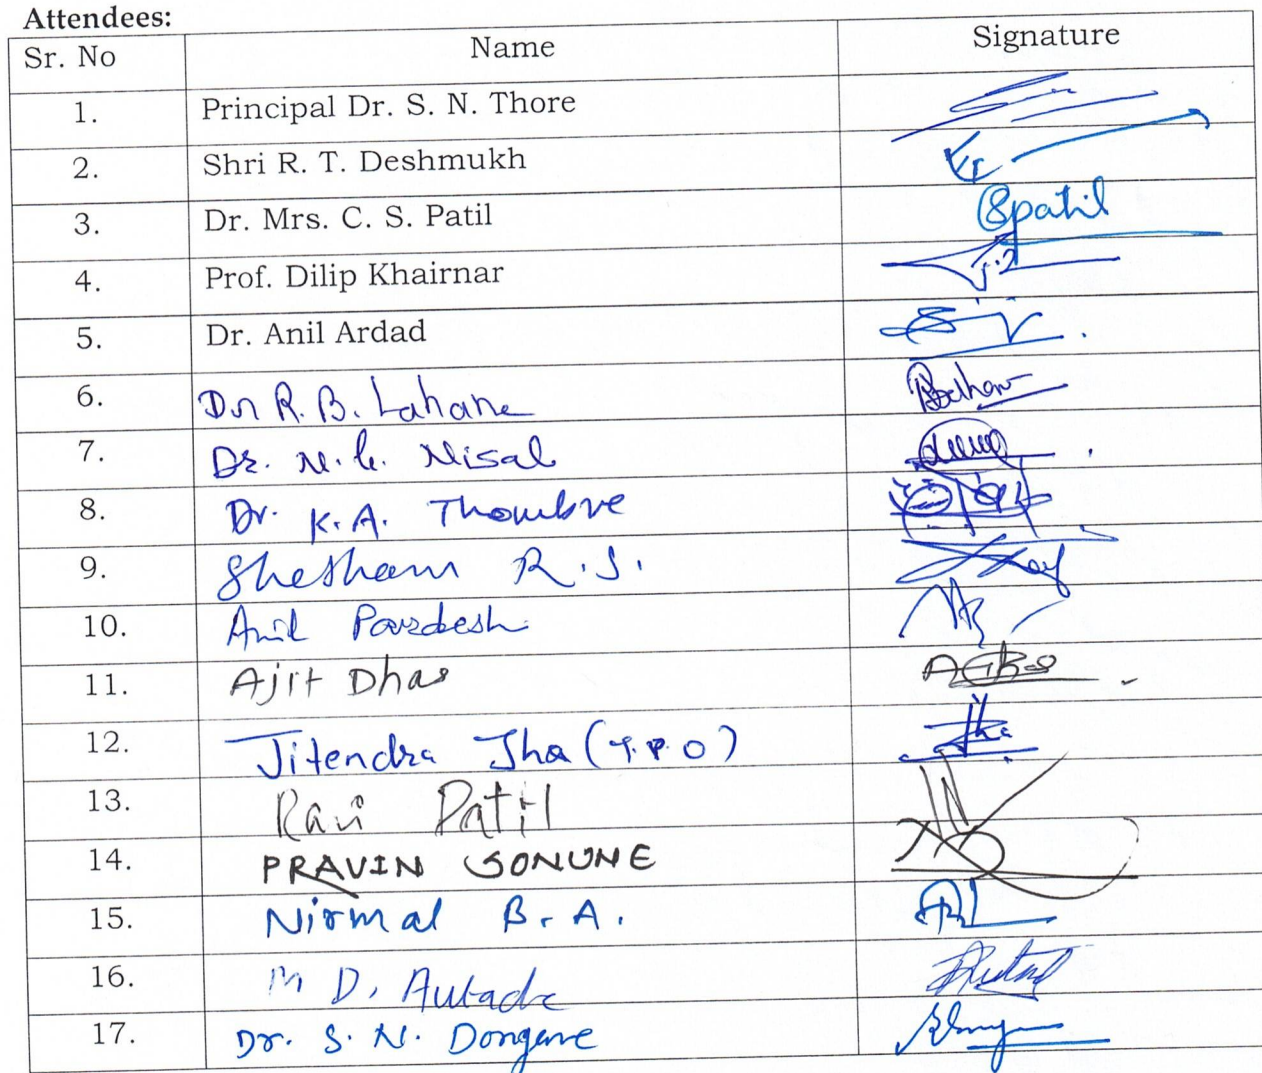 Attendees:
Sr. No Name Signature
1. Principal Dr. S. N. Thore
2. Shri R. T. Deshmukh
3. Dr. Mrs. C. S. Patil Spatil
4. Prof. Dilip Khairnar
5. Dr. Anil Ardad
6. Dr R. B. Lahane
7. Dr. N. G. Nisal
8. Dr. K. A. Thombre
9. Shesham R. S.
10. Anil Pardeshi
11. Ajit Dhas
12. Jitendra Jha (T.P.O)
13. Ravi Patil
14. PRAVIN SONUNE
15. Nirmal B. A.
16. M D. Autade
17. Dr. S. N. Dongare